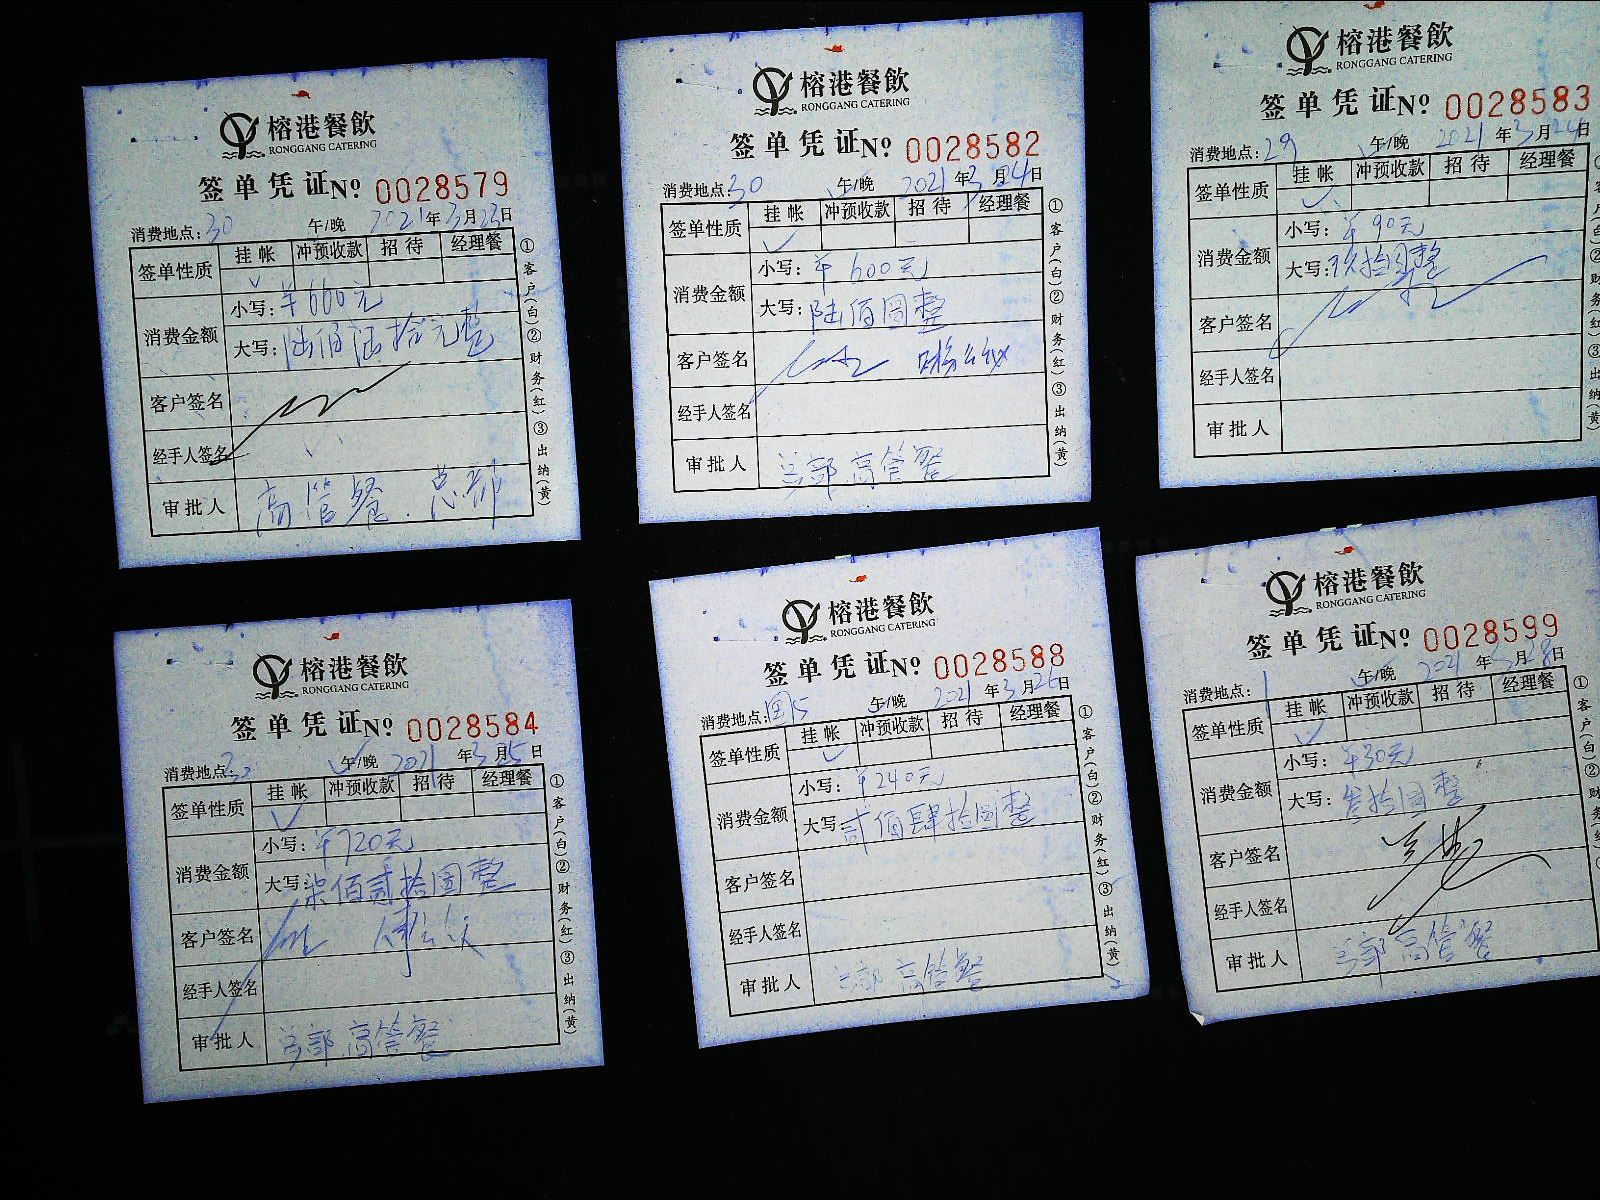 榕港餐飲
RONGGANG CATERING
签单凭证 № 0028579
消费地点：30 午/晚 2021年3月23日
签单性质 挂帐 冲预收款 招待 经理餐
✓
消费金额 小写：￥660元
大写：陆佰陆拾元整
客户签名
经手人签名
审批人 高管餐.总部
①客户(白)②财务(红)③出纳(黄)
榕港餐飲
RONGGANG CATERING
签单凭证 № 0028582
消费地点：30 午/晚 2021年3月24日
签单性质 挂帐 冲预收款 招待 经理餐
✓
消费金额 小写：￥600元
大写：陆佰圆整
客户签名
经手人签名
审批人 总部高管餐
①客户(白)②财务(红)③出纳(黄)
榕港餐飲
RONGGANG CATERING
签单凭证 № 0028583
消费地点：29 午/晚 2021年3月24日
签单性质 挂帐 冲预收款 招待 经理餐
✓
消费金额 小写：￥90元
大写：玖拾圆整
客户签名
经手人签名
审批人
榕港餐飲
RONGGANG CATERING
签单凭证 № 0028584
消费地点：30 午/晚 2021年3月25日
签单性质 挂帐 冲预收款 招待 经理餐
✓
消费金额 小写：￥720元
大写：柒佰贰拾圆整
客户签名
经手人签名
审批人 总部高管餐
①客户(白)②财务(红)③出纳(黄)
榕港餐飲
RONGGANG CATERING
签单凭证 № 0028588
消费地点：国15 午/晚 2021年3月26日
签单性质 挂帐 冲预收款 招待 经理餐
✓
消费金额 小写：￥240元
大写：贰佰肆拾圆整
客户签名
经手人签名
审批人 总部高管餐
①客户(白)②财务(红)③出纳(黄)
榕港餐飲
RONGGANG CATERING
签单凭证 № 0028599
消费地点：1 午/晚 2021年3月28日
签单性质 挂帐 冲预收款 招待 经理餐
✓
消费金额 小写：￥30元
大写：叁拾圆整
客户签名
经手人签名
审批人 总部高管餐
①客户(白)②财务(红